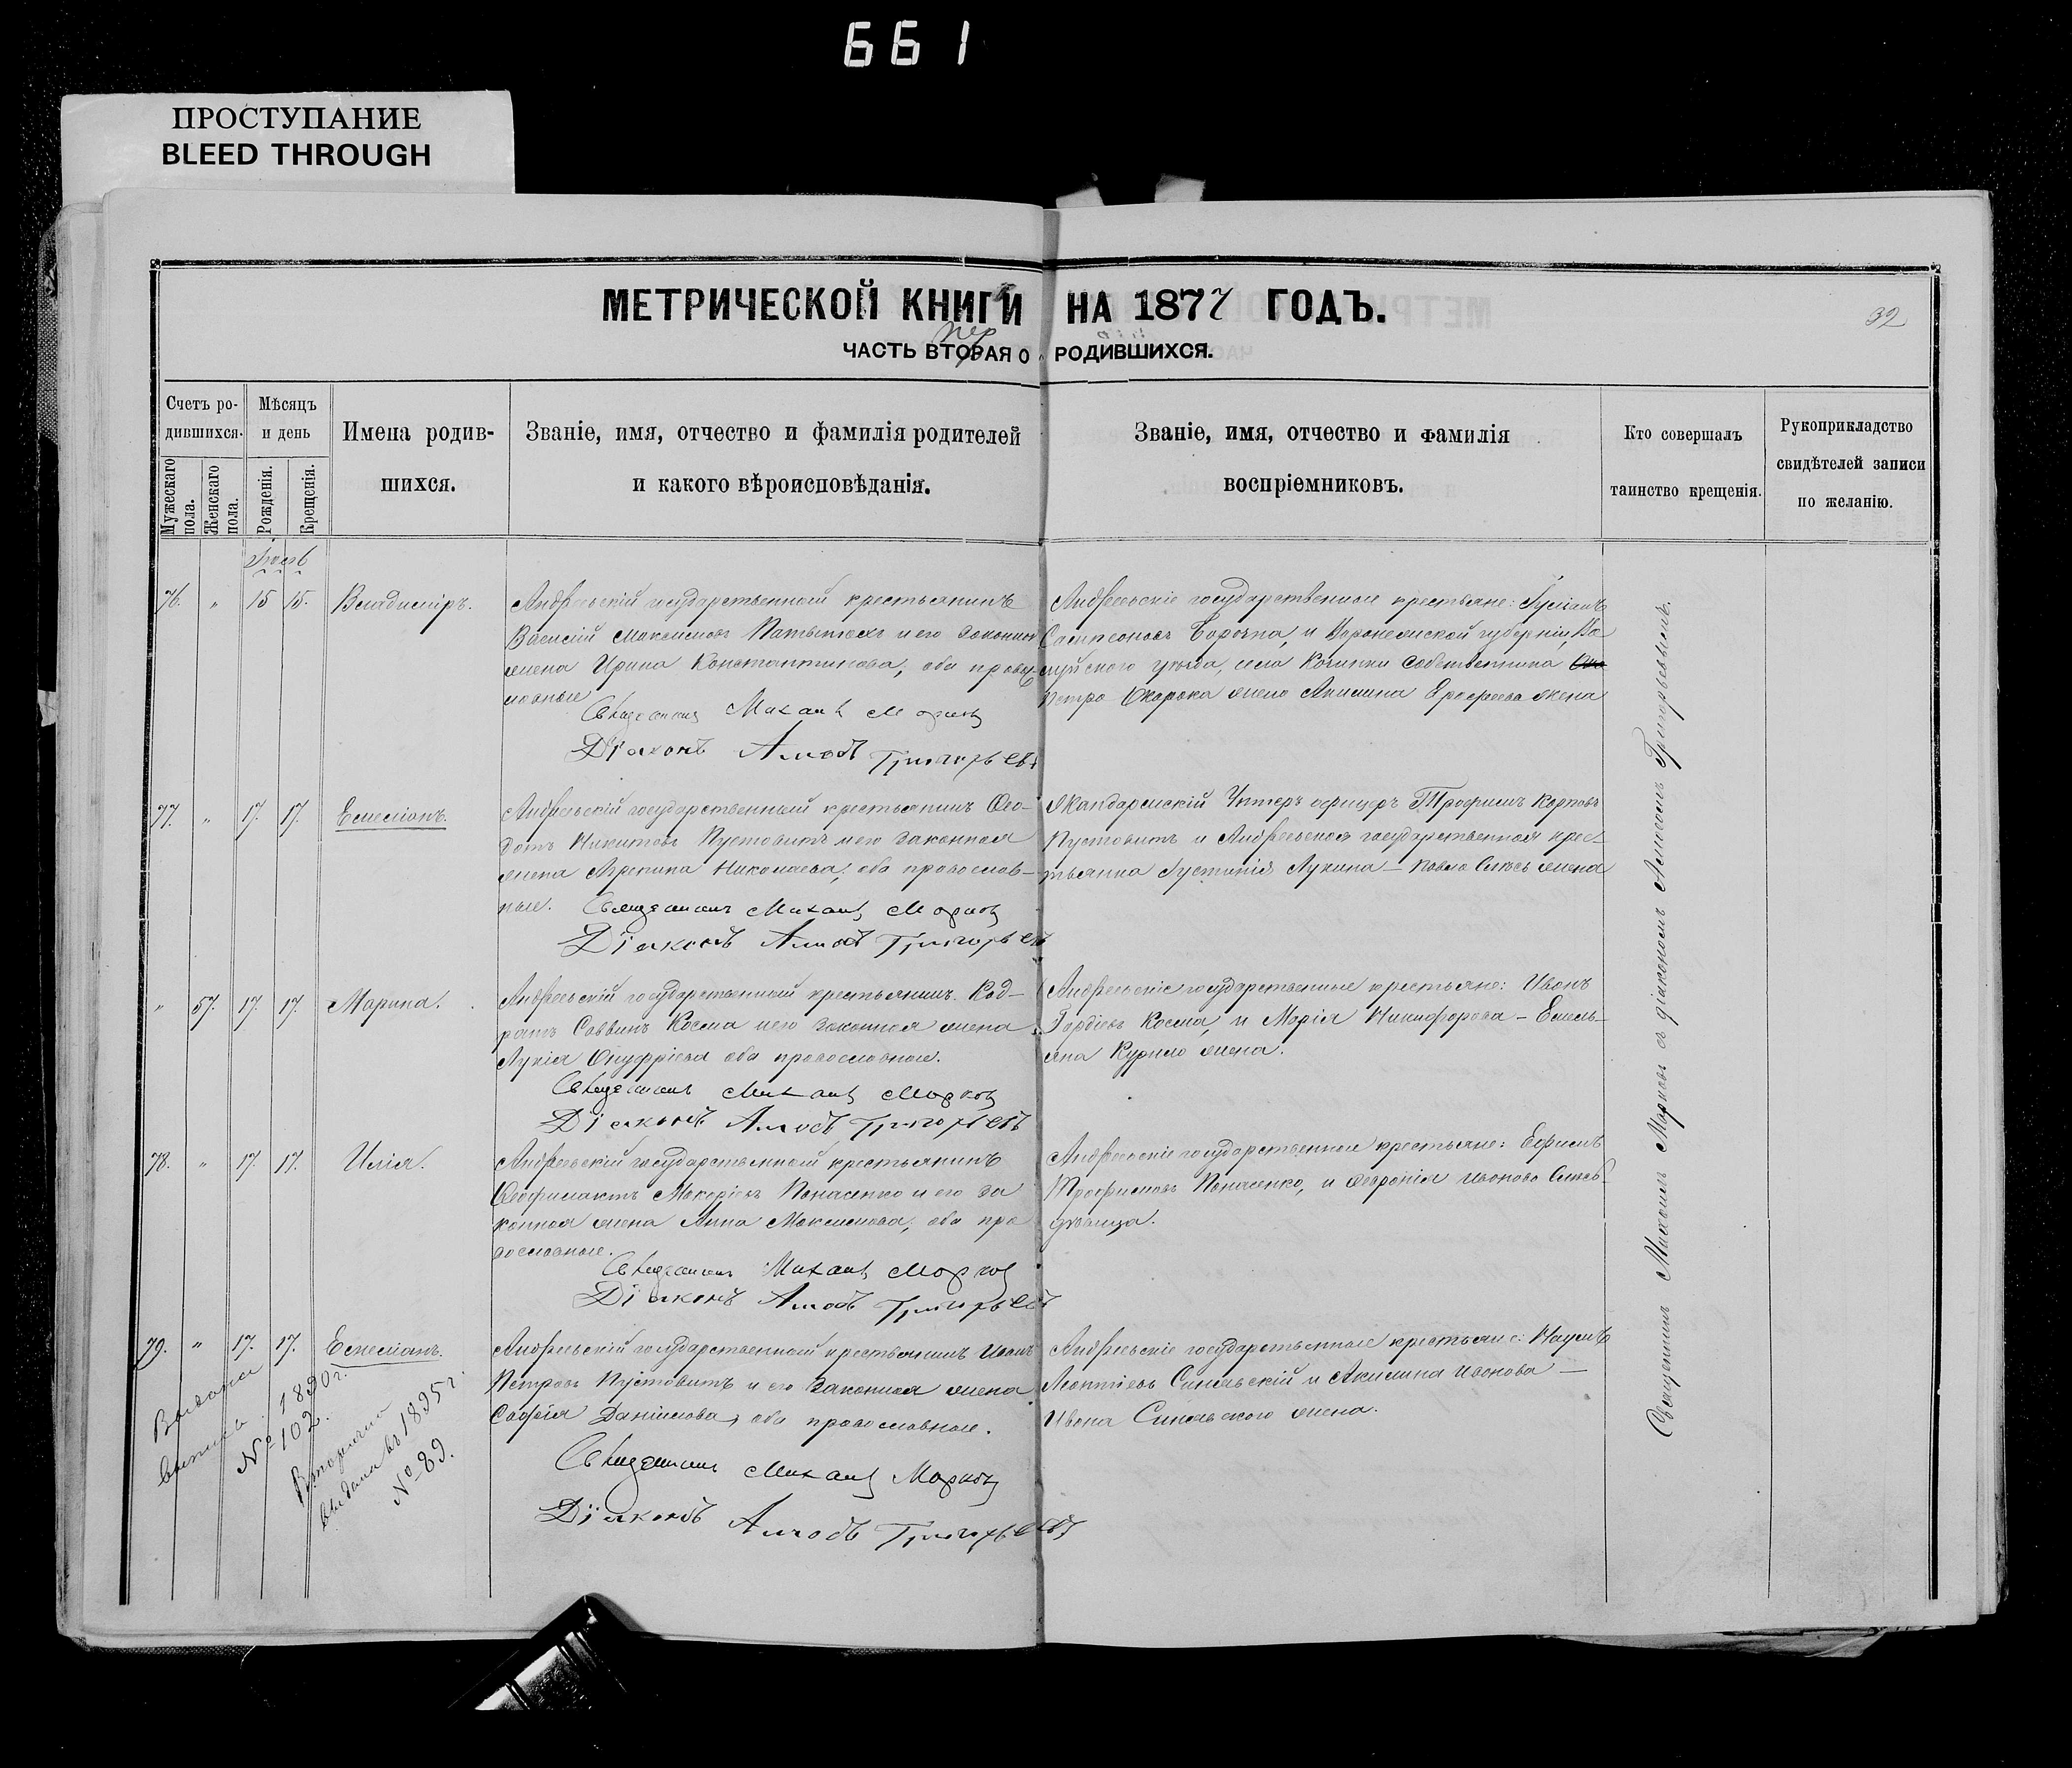 661
ПРОСТУПАНИЕ
BLEED THROUGH
МЕТРИЧЕСКОЙ КНИГИ НА 1877 ГОДЪ.
32
ЧАСТЬ ВТОРАЯ О РОДИВШИХСЯ.
Счетъ ро-
дившихся.
Мужескаго
пола.
Женскаго
пола.
Мѣсяцъ
и день
Рожденія.
Крещенія.
Имена родив-
шихся.
Званіе, имя, отчество и фамилія родителей
и какого вѣроисповѣданія.
Званіе, имя, отчество и фамилія
воспріемниковъ.
Кто совершалъ
таинство крещенія.
Рукоприкладство
свидѣтелей записи
по желанію.
76. " 15 15. Владиміръ.
Андреевскій государственный крестьянинъ
Василій Максимовъ и его законная
жена Ирина Константинова, оба право
славные
Священникъ Михаилъ Марковъ
Діаконъ Амосъ Григорьевъ
Андреевскіе государственные крестьяне:
Сампсоновъ и Воронежской губерніи, Ва
луйскаго уѣзда, села собственника
Петра жена Акилина Ерофеева жена
77. " 17. 17. Емеліанъ.
Андреевскій государственный крестьянинъ Ѳео-
дотъ Никитовъ Пустовитъ и его законная
жена Агрипина Николаева, оба православ-
ные. Священникъ Михаилъ Марковъ
Діаконъ Амосъ Григорьевъ
Жандармскій Унтеръ офицеръ Трофимъ Карповъ
Пустовитъ и Андреевская государственная крес-
тьянка Іустинія Лукина — Павла жена
" 57. 17. 17. Марина.
Андреевскій государственный крестьянинъ Код-
ратъ Саввинъ Косма и его законная жена
Лукія Онуфріева оба православные.
Священникъ Михаилъ Марковъ
Діаконъ Амосъ Григорьевъ
Андреевскіе государственные крестьяне: Иванъ
Гордіевъ Косма, и Марія Никифорова — Емель-
яна Курило жена.
78. " 17. 17. Илія.
Андреевскій государственный крестьянинъ
Ѳеофилактъ Макаріевъ Панасенко и его за
конная жена Анна Максимова, оба пра
вославные.
Священникъ Михаилъ Марковъ
Діаконъ Амосъ Григорьевъ
Андреевскіе государственные крестьяне: Ефимъ
Трофимовъ Панасенко, и Февронія Иванова
дѣвица.
79. " 17. 17. Емеліанъ.
Андреевскій государственный крестьянинъ Иванъ
Петровъ Пустовитъ и его законная жена
Софія Даніилова, оба православные.
Священникъ Михаилъ Марковъ
Діаконъ Амосъ Григорьевъ
Андреевскіе государственные крестьяне: Наумъ
Леонтіевъ Синявскій и Акилина Иванова —
Ивана Синявскаго жена.
Выдана
выпись 1890 г.
№ 102.
Вторично
выдана въ 1895 г.
№ 89.
Священникъ Михаилъ Марковъ съ діакономъ Амосомъ Григорьевымъ.